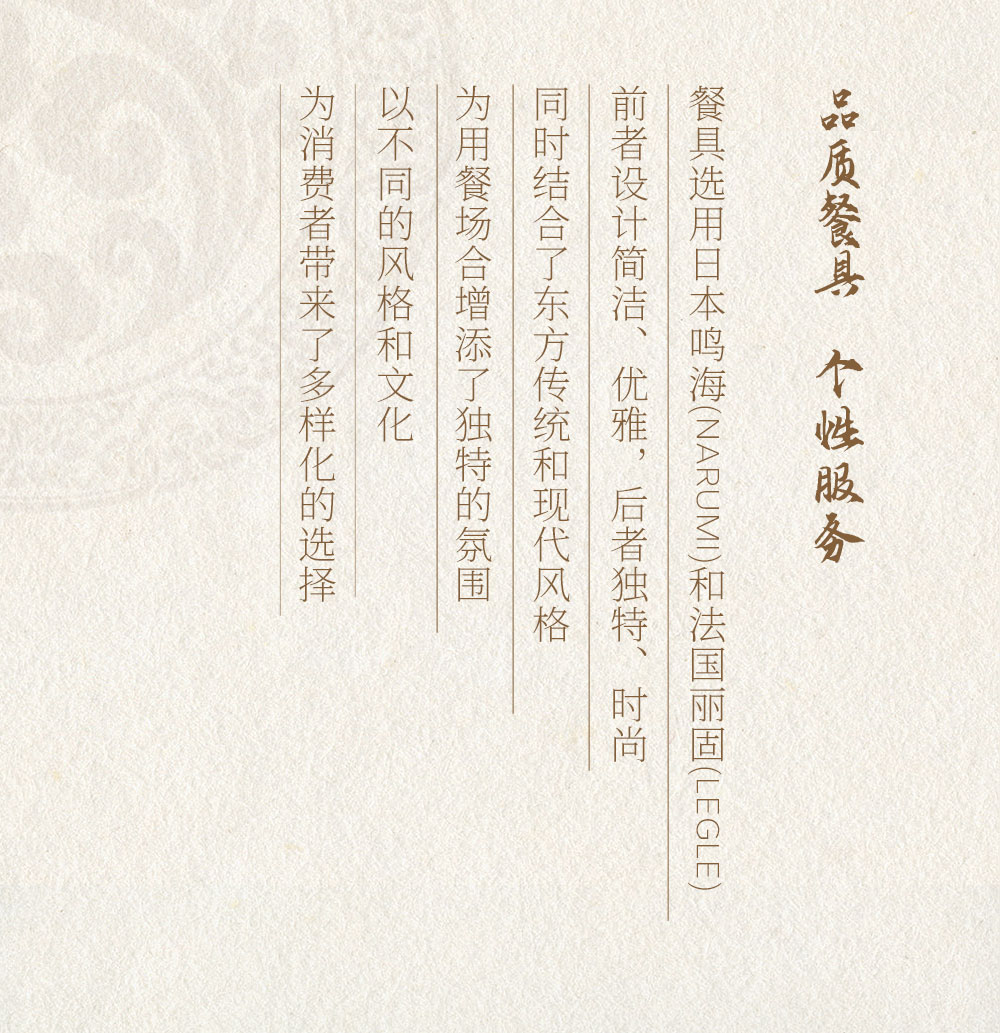 品质餐具 个性服务
餐具选用日本鸣海(NARUMI)和法国丽固(LEGLE)
前者设计简洁、优雅，后者独特、时尚
同时结合了东方传统和现代风格
为用餐场合增添了独特的氛围
以不同的风格和文化
为消费者带来了多样化的选择